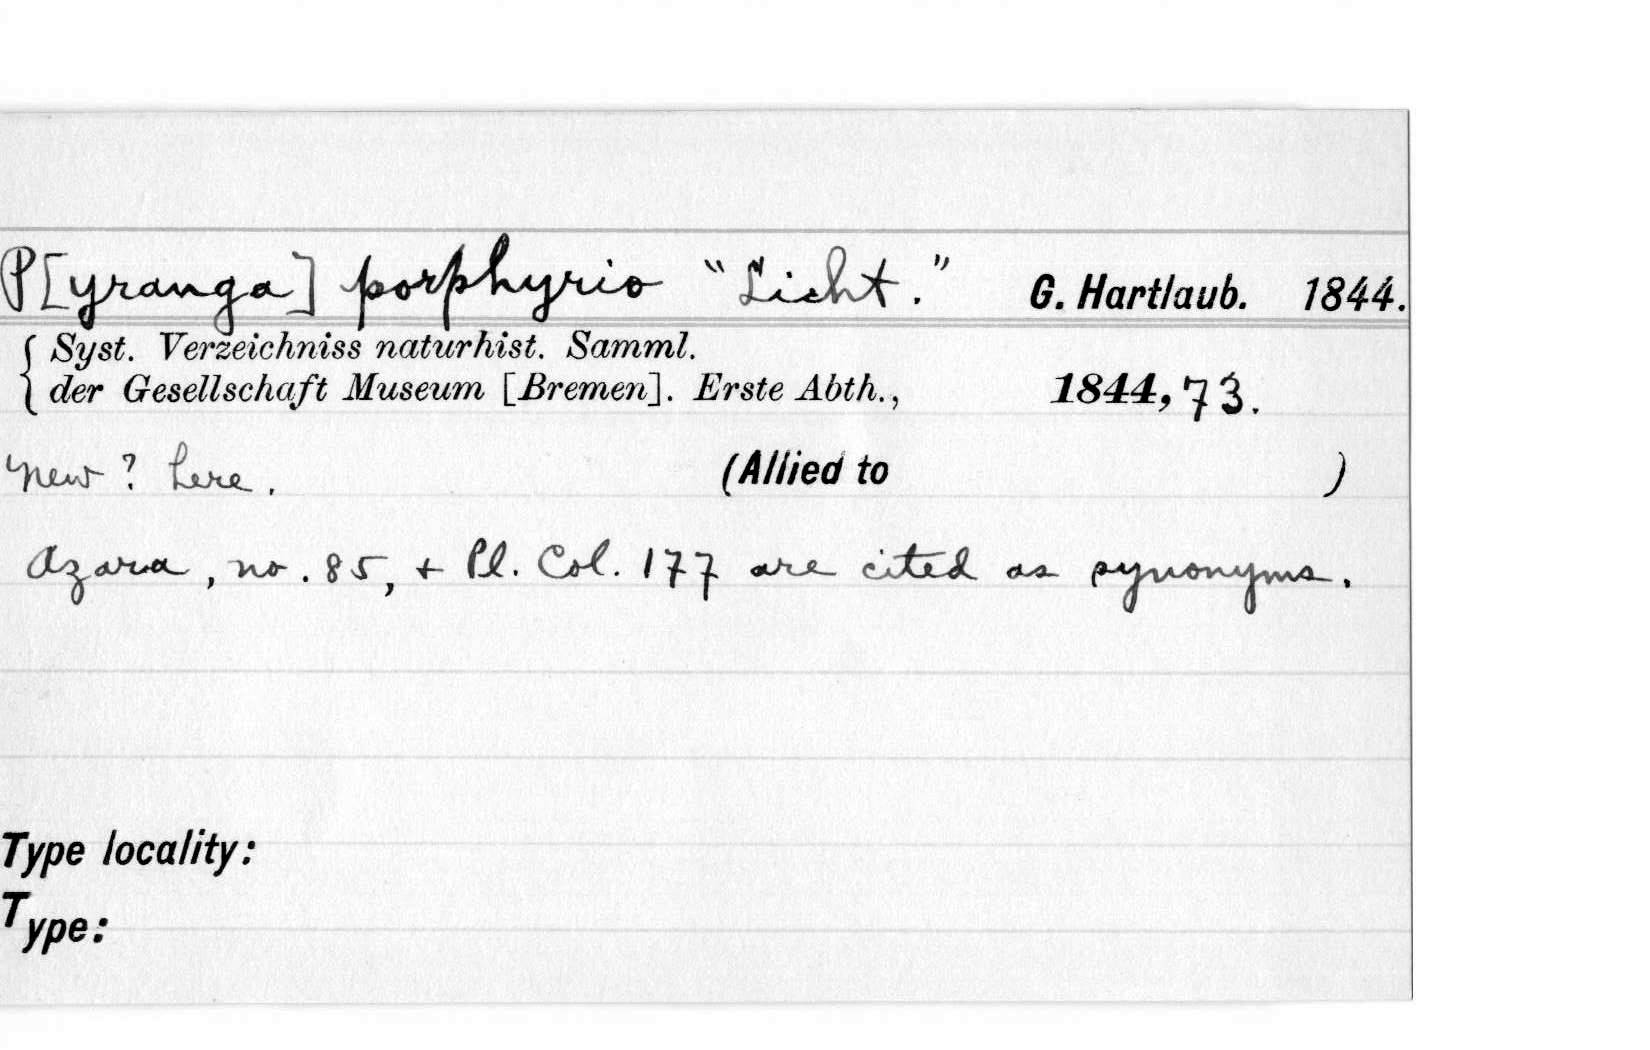 P[yranga] porphyrio "Licht." G. Hartlaub. 1844.
Syst. Verzeichniss naturhist. Samml.
der Gesellschaft Museum [Bremen]. Erste Abth., 1844, 73.
New? here. (Allied to )
Azara, no. 85, + Pl. Col. 177 are cited as synonyms.
Type locality:
Type: